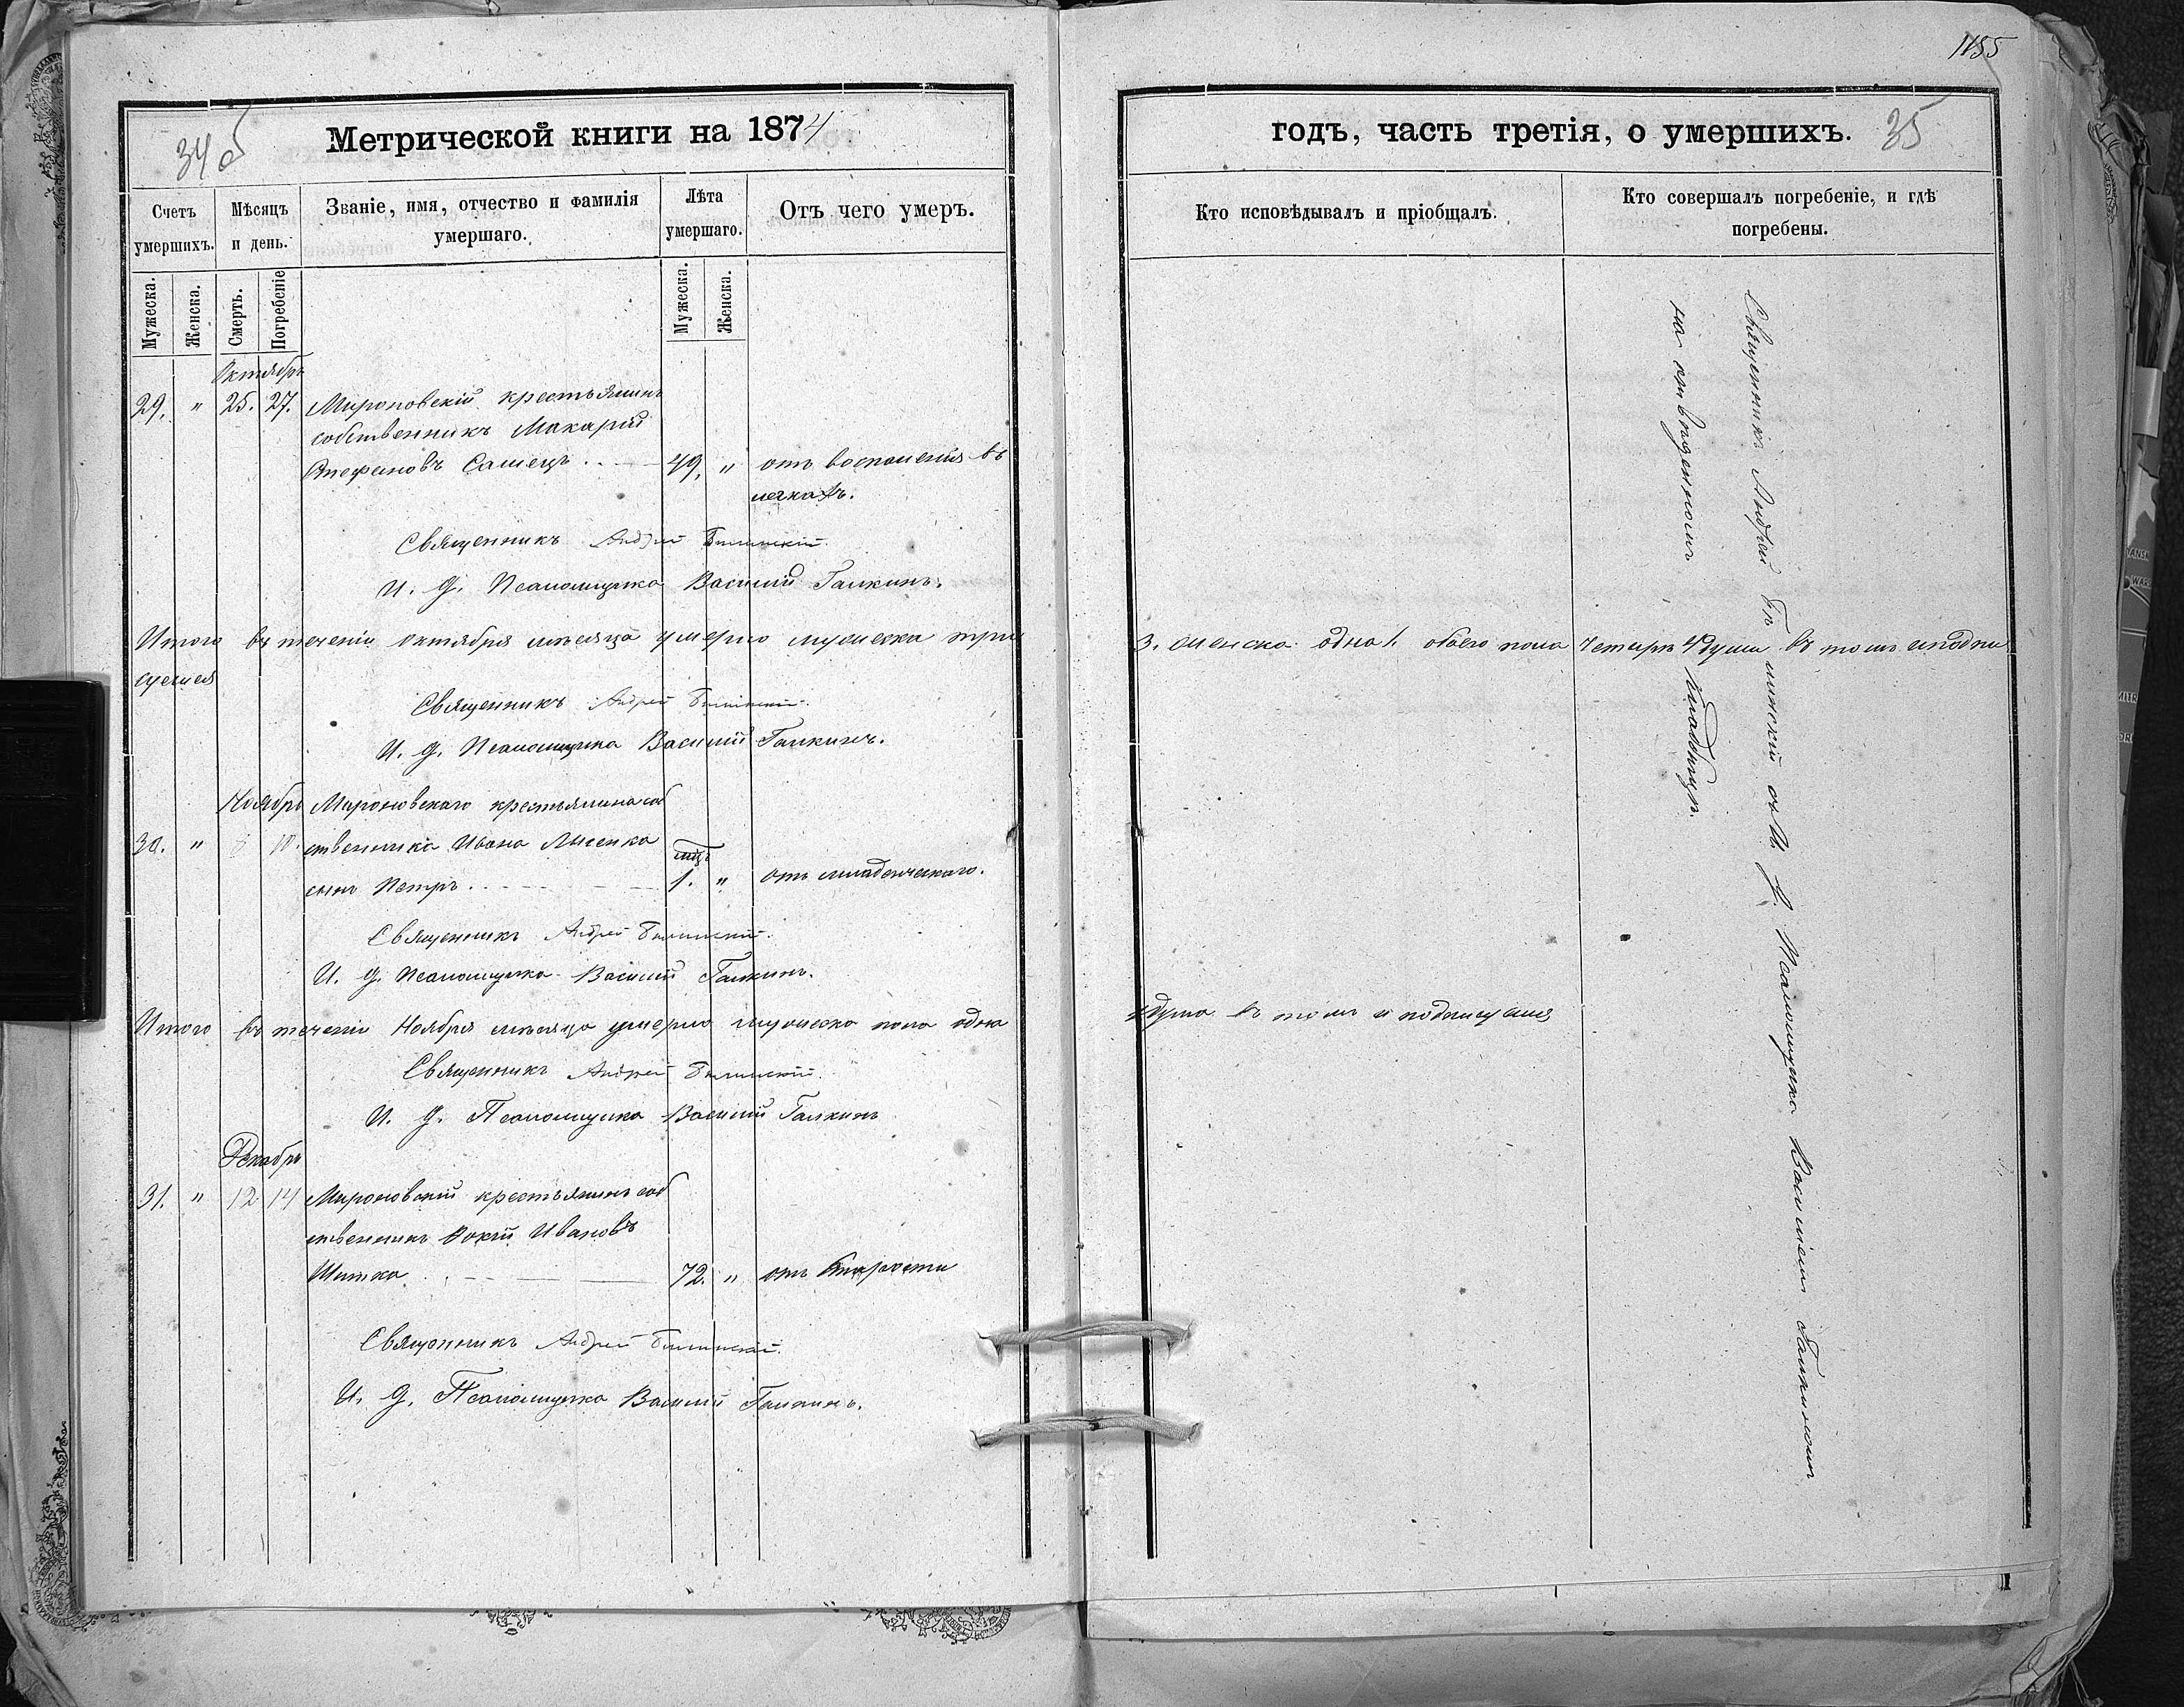 1155
34об
Метрической книги на 1874
Счетъ умершихъ.
Мѣсяцъ и день.
Званіе, имя, отчество и фамилія умершаго.
Лѣта умершаго.
Отъ чего умеръ.
Мужеска.
Женска.
Смерть.
Погребеніе
Мужеска.
Женска.
Октябрь
29. " 25. 27. Мироновскій крестьянинъ
собственникъ Макарій
Стефановъ 49. " отъ воспаленія въ
легкахъ.
Священникъ Андрей
И. д. Псаломщика Василій Галкинъ.
Итого въ теченіи октября мѣсяца умерло мужеска три
Священникъ Андрей
И. д. Псаломщика Василій Галкинъ.
Ноябрь Мироновскаго крестьянина соб
30. " 10. ственника Ивана Лысенка
сынъ Петръ. мѣс. 1. " отъ младенческаго.
Священникъ Андрей
И. д. Псаломщика Василій Галкинъ.
Итого въ теченіи Ноября мѣсяца умерло мужеска пола одна
Священникъ Андрей
И. д. Псаломщика Василій Галкинъ
Декабрь
31. " 12 14 Мироновскій крестьянинъ соб
ственникъ Ивановъ
72. " отъ старости
Священникъ Андрей
И. д. Псаломщика Василій Галкинъ.
годъ, часть третія, о умершихъ. 35
Кто исповѣдывалъ и пріобщалъ.
Кто совершалъ погребеніе, и гдѣ погребены.
3. женска одна 1. обоего пола четыре 4 души въ томъ и подпи
1 душа въ томъ и подписуемся
Священникъ Андрей съ И. д. Псаломщика Василіемъ Галкиномъ
на отведенномъ кладбищѣ.